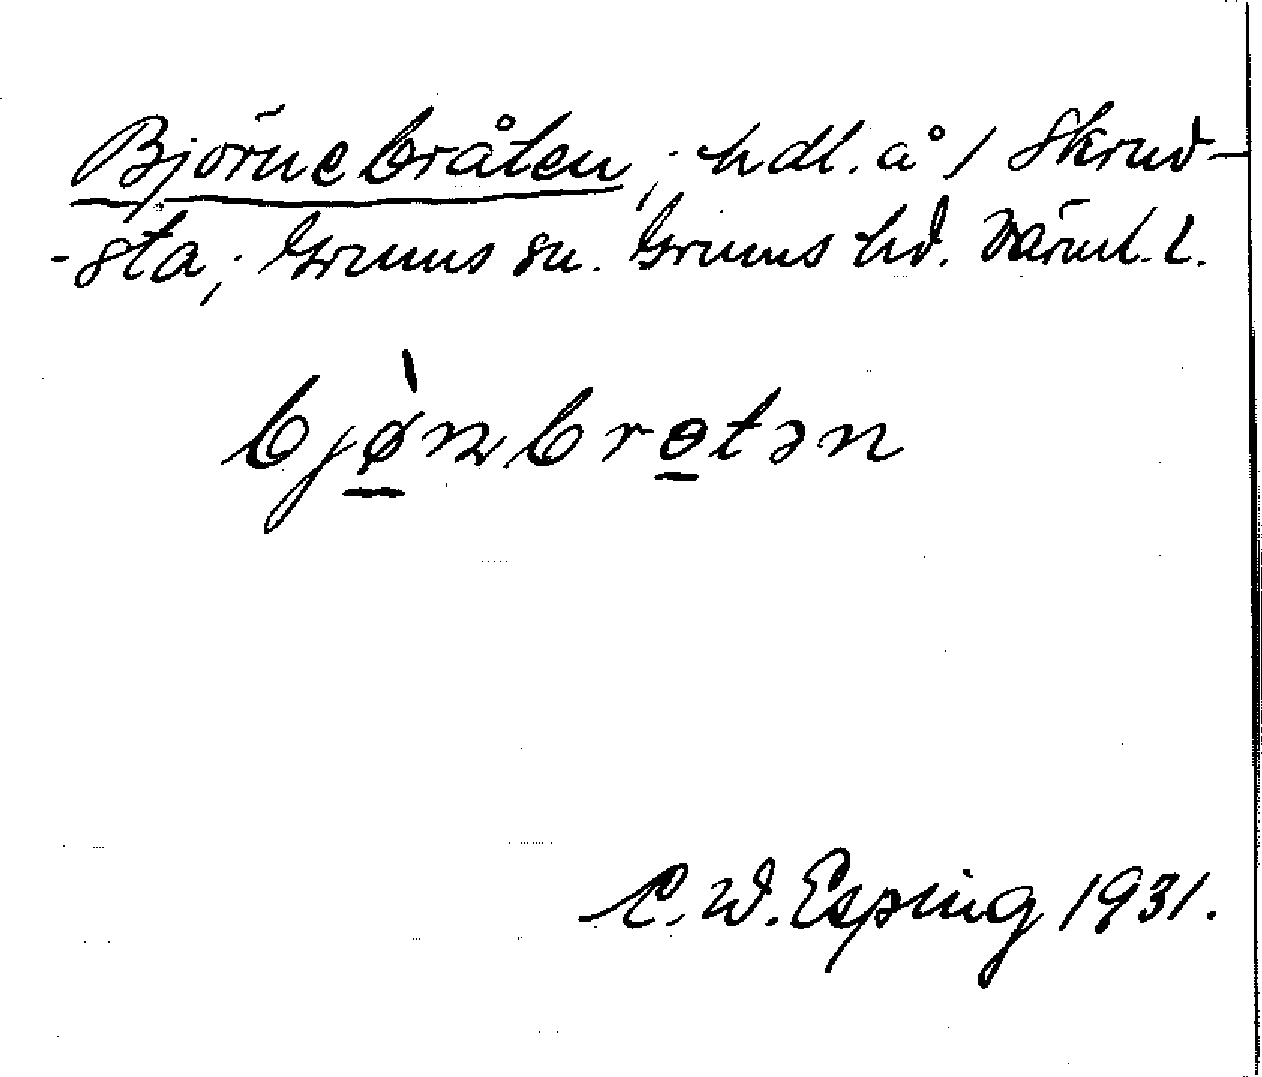 Björnebråten; hdl. å 1 Skruv-
-sta; Grums sn. Grums hd. Värml. l.
bjø̠̀nbrɵ̠tən
C. W. Esping 1931.